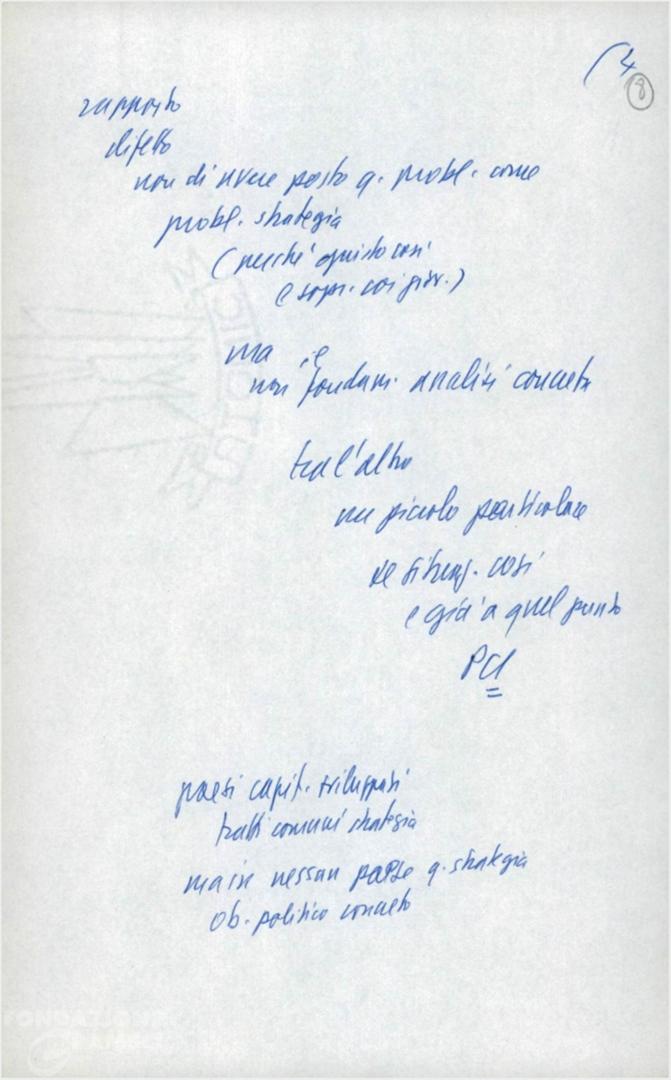 (4
8
rapporto
difetto
non di avere posto q. probl. come
probl. strategia
(perché giusto così
e sopr. coi giov.)
ma
non fondam. analisi concreta
tra l'altro
un piccolo particolare
se così
e già a quel punto
PCI
paesi capit. sviluppati
tratti comuni strategia
ma in nessun paese q. strategia
ob. politico concreto